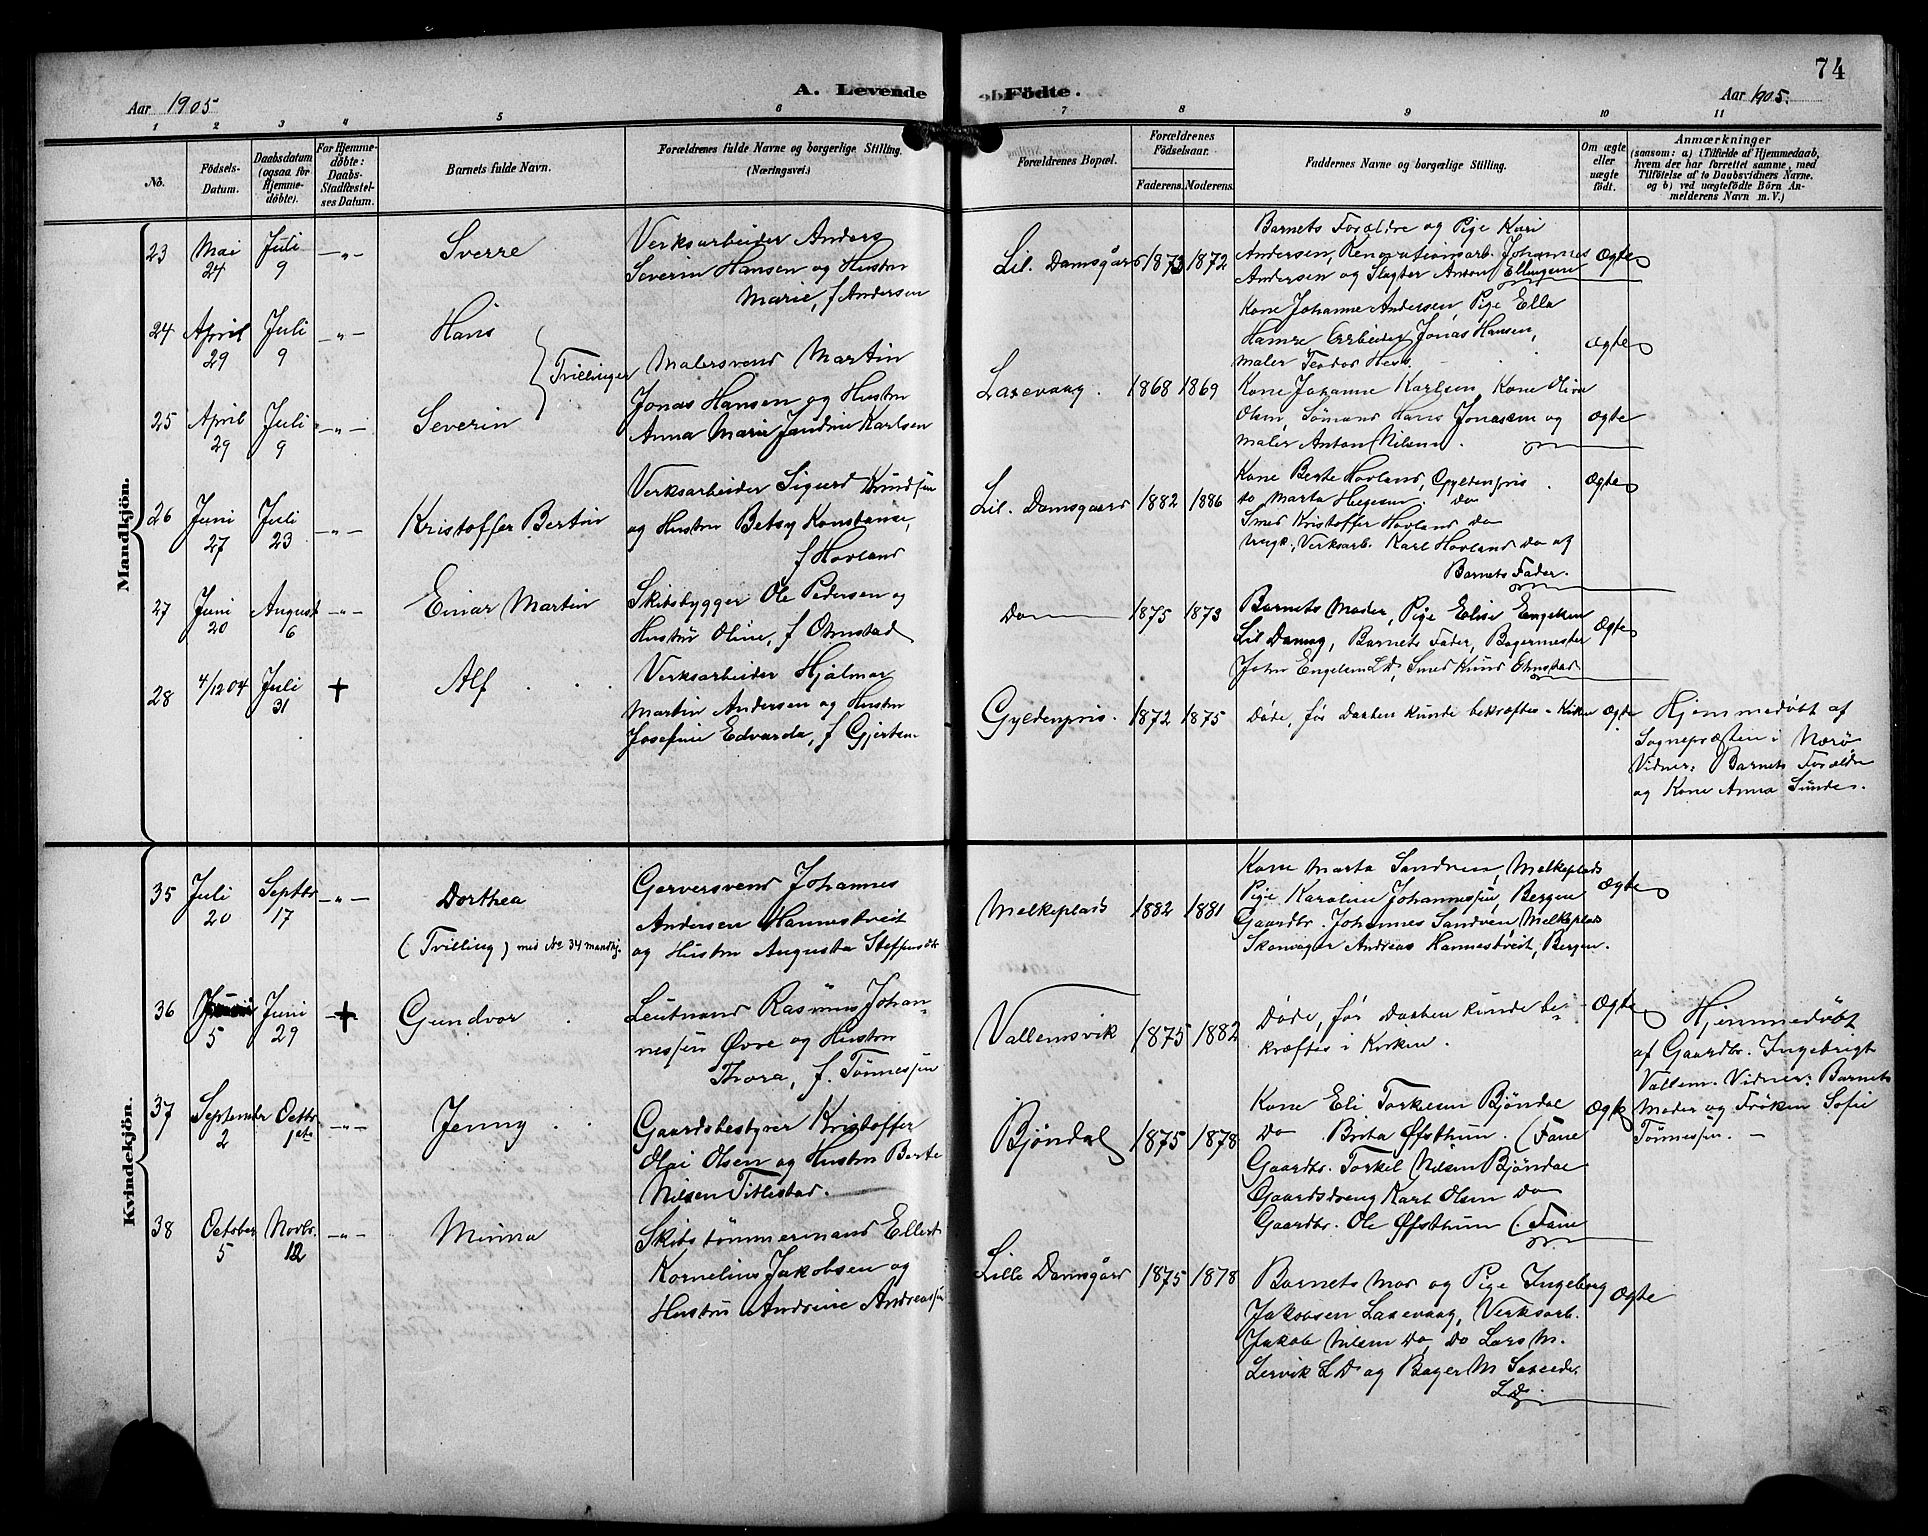 74
Aar 1905. A. Levende Födte. Aar 1905.
1 2 3 4 5 6 7 8 9 10 11
No.
Födsels-
Datum.
Daabsdatum
(ogsaa for
Hjemme-
döbte).
For Hjemme-
döbte:
Daabs-
Stadfæstel-
ses Datum.
Barnets fulde Navn.
Forældrenes fulde Navne og borgerlige Stilling.
(Næringsvei.)
Forældrenes Bopæl.
Forældrenes
Födselsaar.
Faderens. Moderens.
Faddernes Navne og borgerlige Stilling.
Om ægte
eller
uægte
födt.
Anmærkninger
(saasom: a) i Tilfælde af Hjemmedaab,
hvem der har forrettet samme, med
Tilföielse af to Daabsvidners Navne.
og b) ved uægtefödte Börn An-
melderens Navn m. V.)
Mandkjön.
23 Mai 24 Juli 9 —"— Sverre
Verksarbeider Anders
Severin Hansen og Hustru
Marie, f. Andersen
Lil. Damsgård 1873 1872
Barnets Forældre og Pige Kari
Andersen, Renovationsarb. Johannes
Andersen og Slagter Anton Ellingsen
Ægte
24 April 29 Juli 9 —"— Hans
Trillinger
Malersvend Martin
Jonas Hansen og Hustru
Anna Marie Jandine Karlsen
Laxevaag. 1868 1869
Kone Johanne Andersen, Pige Ella
Hamre Arbeider Jonas Hansen,
Maler Teodor
Ægte
25 April 29 Juli 9 —"— Severin
Kone Johanne Karlsen, Kone Oline
Olsen, Sömand Hans Jonassen og
Maler Anton Nilsen.
Ægte
26 Juni 27 Juli 23 —"— Kristoffer Bertin
Verksarbeider Sigurd Knudsen
og Hustru Betsy Konstanse,
f. Hovland
Lil. Damsgaard 1882 1886
Kone Berte Hovland, Gyldenpris
do Marta do
Smed Kristoffer Hovland do
Ungk., Verksarb. Karl Hovland do og
Barnets Fader.
Ægte
27 Juni 20 August 6 —"— Einar Martin
Skibsbygger Ole Pedersen og
Hustru Oline, f. Omstad
Do 1875 1873
Barnets Moder, Pige Elise Engelsen
Lil Damsg, Barnets Fader, Bagermester
John Engelsen L D, Smed Knud
Ægte
28 4/12 04 Juli 31 + Alf
Verksarbeider Hjalmar
Martin Andersen og Hustru
Josefine Edvarda, f. Gjertsen
Gyldenpris. 1872 1875
Döde, før Daaben kunde bekræftes i Kirken
Ægte
Hjemmedöbt af
Sognepræsten i Nærö
Vidner: Barnets Forældre
og Kone Anna Sunde.
Kvindekjön.
35 Juli 20 Septbr 17 —"— Dorthea
(Trilling) med No 34 mandkj.
Garversvend Johannes
Andersen Hannestveit
og Hustru Augusta
Melkeplads 1882 1881
Kone Marta Sandven, Melkeplads
Pige Karoline Johannessen, Bergen
Gaardbr. Johannes Sandven, Melkeplads
Skomager Andreas Hannestveit, Bergen.
Ægte
36 5 Juni 29 + Gundvor
Leutnand Rasmus Johan-
nessen Øvre og Hustru
Thora, f. Tönnessen
Vallemsvik 1875 1882
Döde, før Daaben kunde be-
kræftes i Kirken.
Ægte
Hjemmedöbt
af Gaardbr. Ingebrigt
Vallem. Vidner: Barnets
Moder og Fröken Sofie
Tönnessen. —
37 September 2 Octbr 1ste —"— Jenny
Gaardsbestyrer Kristoffer
Olai Olsen og Hustru Berte
Nilsen Titlestad.
Bjöndal 1875 1878
Kone Eli Torkelsen Bjöndal
Do Brita Øfsthun. (Fane
Gaardbr. Torkel Nilsen Bjöndal
Gaardsdreng Karl Olsen Do
Gaardbr. Ole Øfsthun (Fane
Ægte
38 October 5 Novbr. 12 —"— Minna
Skibstömmermand Ellert
Kornelius Jakobsen og
Hustru Andrine Andreassen
Lille Damsgård 1875 1878
Barnets Mor og Pige Ingeborg
Jakobsen Laxevaag, Verksarb.
Jakob Nilsen Do, Do Lars M.
Lervik L D og Bager M
L D.
Ægte